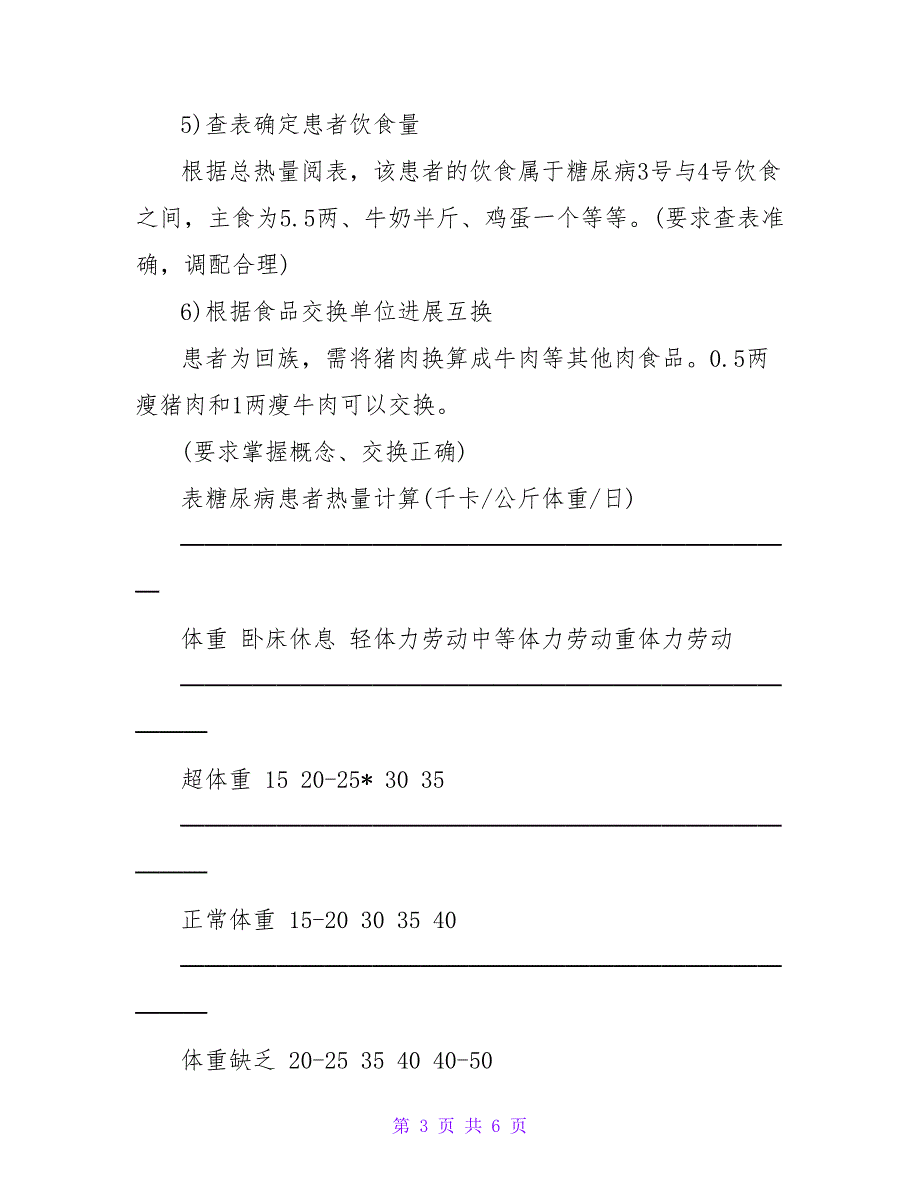 5)查表确定患者饮食量
根据总热量阅表，该患者的饮食属于糖尿病3号与4号饮食
之间，主食为5.5两、牛奶半斤、鸡蛋一个等等。(要求查表准
确，调配合理)
6)根据食品交换单位进展互换
患者为回族，需将猪肉换算成牛肉等其他肉食品。0.5两
瘦猪肉和1两瘦牛肉可以交换。
(要求掌握概念、交换正确)
表糖尿病患者热量计算(千卡/公斤体重/日)
体重 卧床休息 轻体力劳动中等体力劳动重体力劳动
超体重 15 20-25* 30 35
正常体重 15-20 30 35 40
体重缺乏 20-25 35 40 40-50
第 3 页 共 6 页